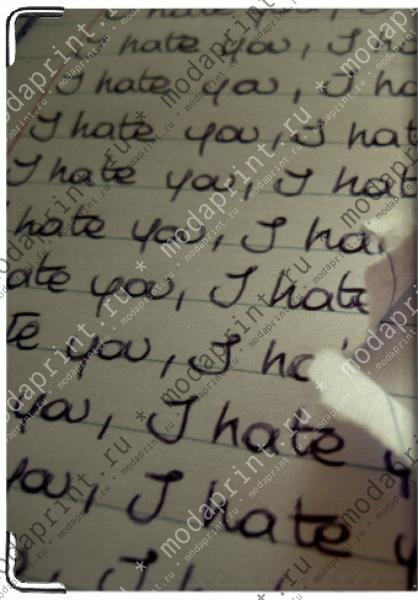 I hate you, I
hate you, I h
I hate you, I ha
I hate you, I hat
I hate you, I hat
hate you, I ha
ate you, I hate
te you, I ha
you, I hate y
you, I hate y
, I h
* modaprint.ru * modaprint.ru * modaprint.ru